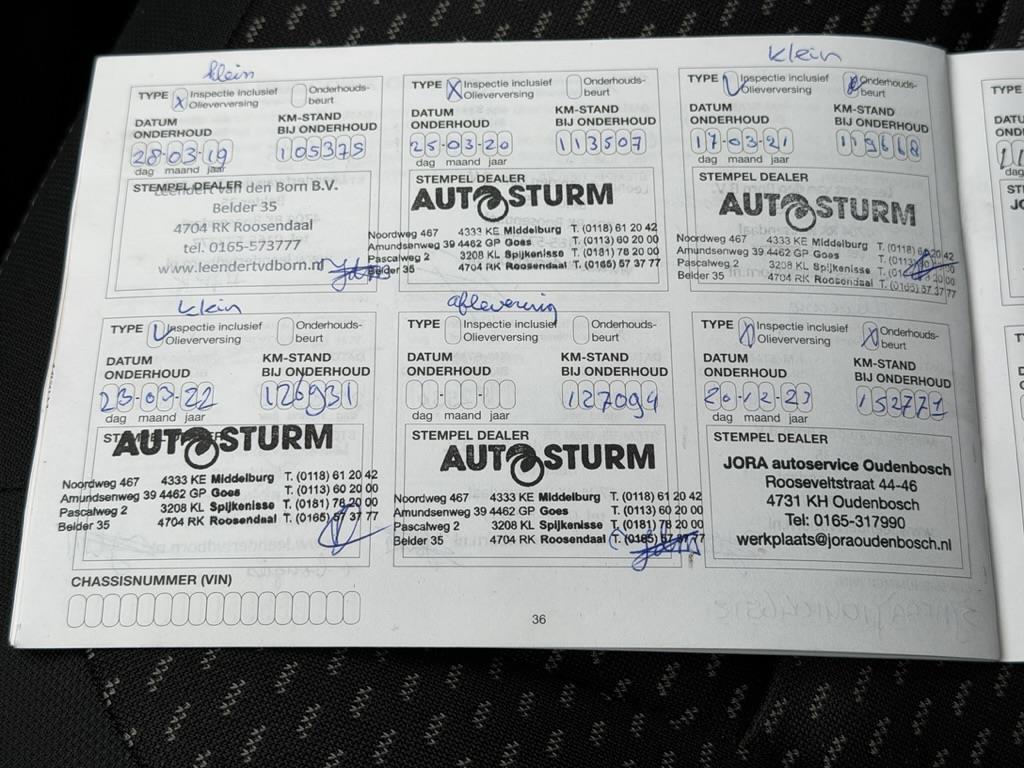 klein
TYPE X Inspectie inclusief Olieverversing Onderhouds-beurt
DATUM ONDERHOUD
KM-STAND BIJ ONDERHOUD
28-03-19 105375
dag maand jaar
STEMPEL DEALER
Leendert van den Born B.V.
Belder 35
4704 RK Roosendaal
tel. 0165-573777
www.leendertvdborn.nl
TYPE X Inspectie inclusief Olieverversing Onderhouds-beurt
DATUM ONDERHOUD
KM-STAND BIJ ONDERHOUD
25-03-20 113507
dag maand jaar
STEMPEL DEALER
AUTOSTURM
Noordweg 467 4333 KE Middelburg T. (0118) 61 20 42
Amundsenweg 39 4462 GP Goes T. (0113) 60 20 00
Pascalweg 2 3208 KL Spijkenisse T. (0181) 78 20 00
Belder 35 4704 RK Roosendaal T. (0165) 57 37 77
klein
TYPE Inspectie inclusief Olieverversing Onderhouds-beurt
DATUM ONDERHOUD
KM-STAND BIJ ONDERHOUD
17-03-21 119668
dag maand jaar
STEMPEL DEALER
AUTOSTURM
Noordweg 467 4333 KE Middelburg T. (0118) 61 20 42
Amundsenweg 39 4462 GP Goes T. (0113) 60 20 00
Pascalweg 2 3208 KL Spijkenisse T. (0181) 78 20 00
Belder 35 4704 RK Roosendaal T. (0165) 57 37 77
klein
TYPE Inspectie inclusief Olieverversing Onderhouds-beurt
DATUM ONDERHOUD
KM-STAND BIJ ONDERHOUD
23-03-22 126931
dag maand jaar
STEMPEL DEALER
AUTOSTURM
Noordweg 467 4333 KE Middelburg T. (0118) 61 20 42
Amundsenweg 39 4462 GP Goes T. (0113) 60 20 00
Pascalweg 2 3208 KL Spijkenisse T. (0181) 78 20 00
Belder 35 4704 RK Roosendaal T. (0165) 57 37 77
aflevering
TYPE Inspectie inclusief Olieverversing Onderhouds-beurt
DATUM ONDERHOUD
KM-STAND BIJ ONDERHOUD
127094
dag maand jaar
STEMPEL DEALER
AUTOSTURM
Noordweg 467 4333 KE Middelburg T. (0118) 61 20 42
Amundsenweg 39 4462 GP Goes T. (0113) 60 20 00
Pascalweg 2 3208 KL Spijkenisse T. (0181) 78 20 00
Belder 35 4704 RK Roosendaal T. (0165) 57 37 77
TYPE X Inspectie inclusief Olieverversing X Onderhouds-beurt
DATUM ONDERHOUD
KM-STAND BIJ ONDERHOUD
20-12-23 152771
dag maand jaar
STEMPEL DEALER
JORA autoservice Oudenbosch
Rooseveltstraat 44-46
4731 KH Oudenbosch
Tel: 0165-317990
werkplaats@joraoudenbosch.nl
CHASSISNUMMER (VIN)
36